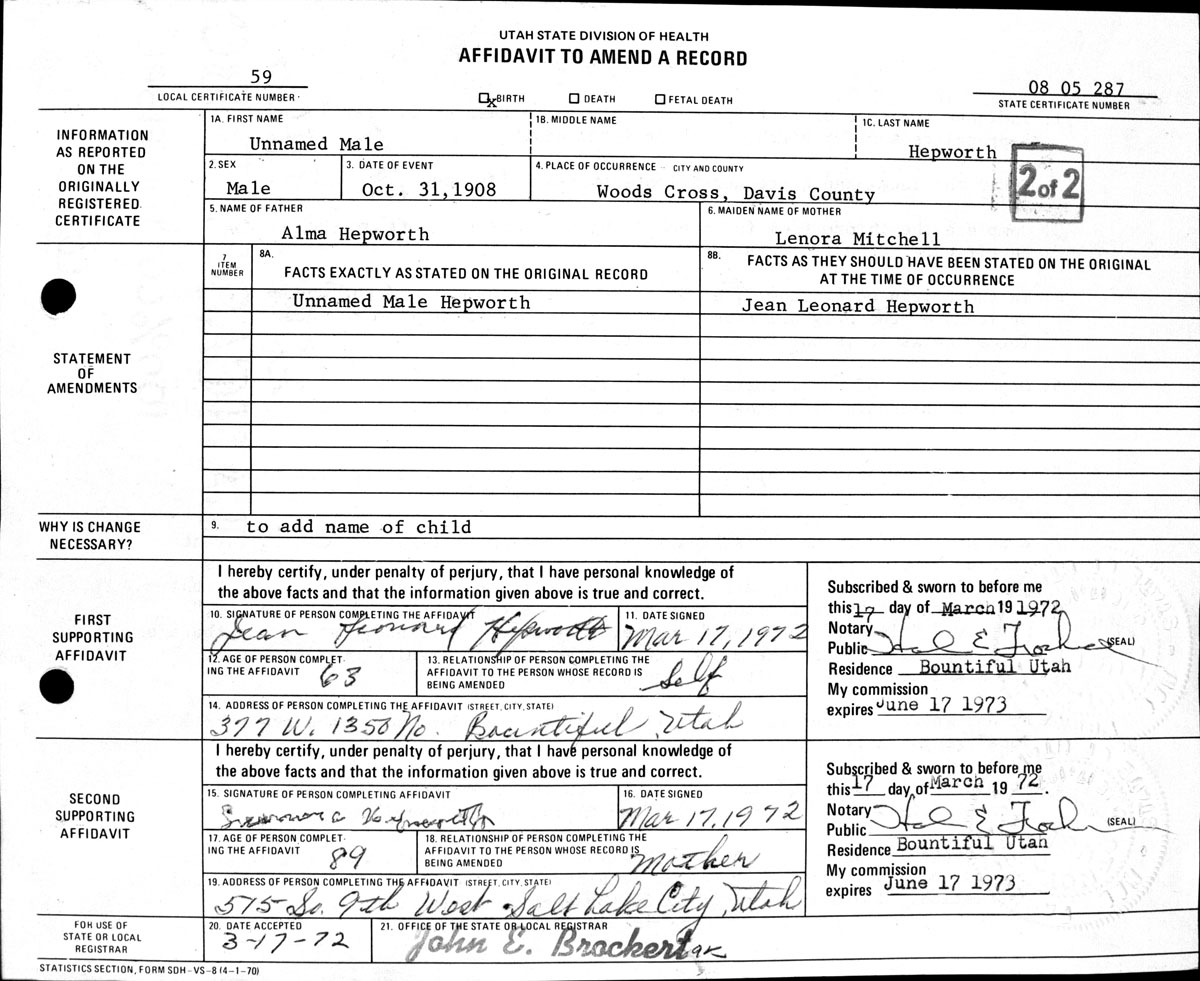 UTAH STATE DIVISION OF HEALTH
AFFIDAVIT TO AMEND A RECORD
59
LOCAL CERTIFICATE NUMBER
x BIRTH DEATH FETAL DEATH
08 05 287
STATE CERTIFICATE NUMBER
INFORMATION
AS REPORTED
ON THE
ORIGINALLY
REGISTERED
CERTIFICATE
1A. FIRST NAME
Unnamed Male
1B. MIDDLE NAME
1C. LAST NAME
Hepworth
2 of 2
2. SEX
Male
3. DATE OF EVENT
Oct. 31,1908
4. PLACE OF OCCURRENCE - CITY AND COUNTY
Woods Cross, Davis County
5. NAME OF FATHER
Alma Hepworth
6. MAIDEN NAME OF MOTHER
Lenora Mitchell
STATEMENT
OF
AMENDMENTS
7
ITEM
NUMBER
8A.
FACTS EXACTLY AS STATED ON THE ORIGINAL RECORD
8B. FACTS AS THEY SHOULD HAVE BEEN STATED ON THE ORIGINAL
AT THE TIME OF OCCURRENCE
Unnamed Male Hepworth
Jean Leonard Hepworth
WHY IS CHANGE
NECESSARY?
9. to add name of child
FIRST
SUPPORTING
AFFIDAVIT
I hereby certify, under penalty of perjury, that I have personal knowledge of
the above facts and that the information given above is true and correct.
10. SIGNATURE OF PERSON COMPLETING THE AFFIDAVIT
Jean Leonard Hepworth
11. DATE SIGNED
Mar 17, 1972
12. AGE OF PERSON COMPLET-
ING THE AFFIDAVIT 63
13. RELATIONSHIP OF PERSON COMPLETING THE
AFFIDAVIT TO THE PERSON WHOSE RECORD IS
BEING AMENDED
Self
14. ADDRESS OF PERSON COMPLETING THE AFFIDAVIT (STREET, CITY, STATE)
377 W. 1350 No. Bountiful, Utah
Subscribed & sworn to before me
this 17 day of March 19 1972
Notary
Public (SEAL)
Residence Bountiful Utah
My commission
expires June 17 1973
SECOND
SUPPORTING
AFFIDAVIT
I hereby certify, under penalty of perjury, that I have personal knowledge of
the above facts and that the information given above is true and correct.
15. SIGNATURE OF PERSON COMPLETING AFFIDAVIT
Hepworth
16. DATE SIGNED
Mar 17, 1972
17. AGE OF PERSON COMPLET-
ING THE AFFIDAVIT 89
18. RELATIONSHIP OF PERSON COMPLETING THE
AFFIDAVIT TO THE PERSON WHOSE RECORD IS
BEING AMENDED
Mother
19. ADDRESS OF PERSON COMPLETING THE AFFIDAVIT (STREET, CITY, STATE)
575 So. 9th West Salt Lake City, Utah
Subscribed & sworn to before me
this 17 day of March 19 72.
Notary
Public (SEAL)
Residence Bountiful Utah
My commission
expires June 17 1973
FOR USE OF
STATE OR LOCAL
REGISTRAR
20. DATE ACCEPTED
3-17-72
21. OFFICE OF THE STATE OR LOCAL REGISTRAR
John E. Brockert
STATISTICS SECTION, FORM SDH-VS-8 (4-1-70)